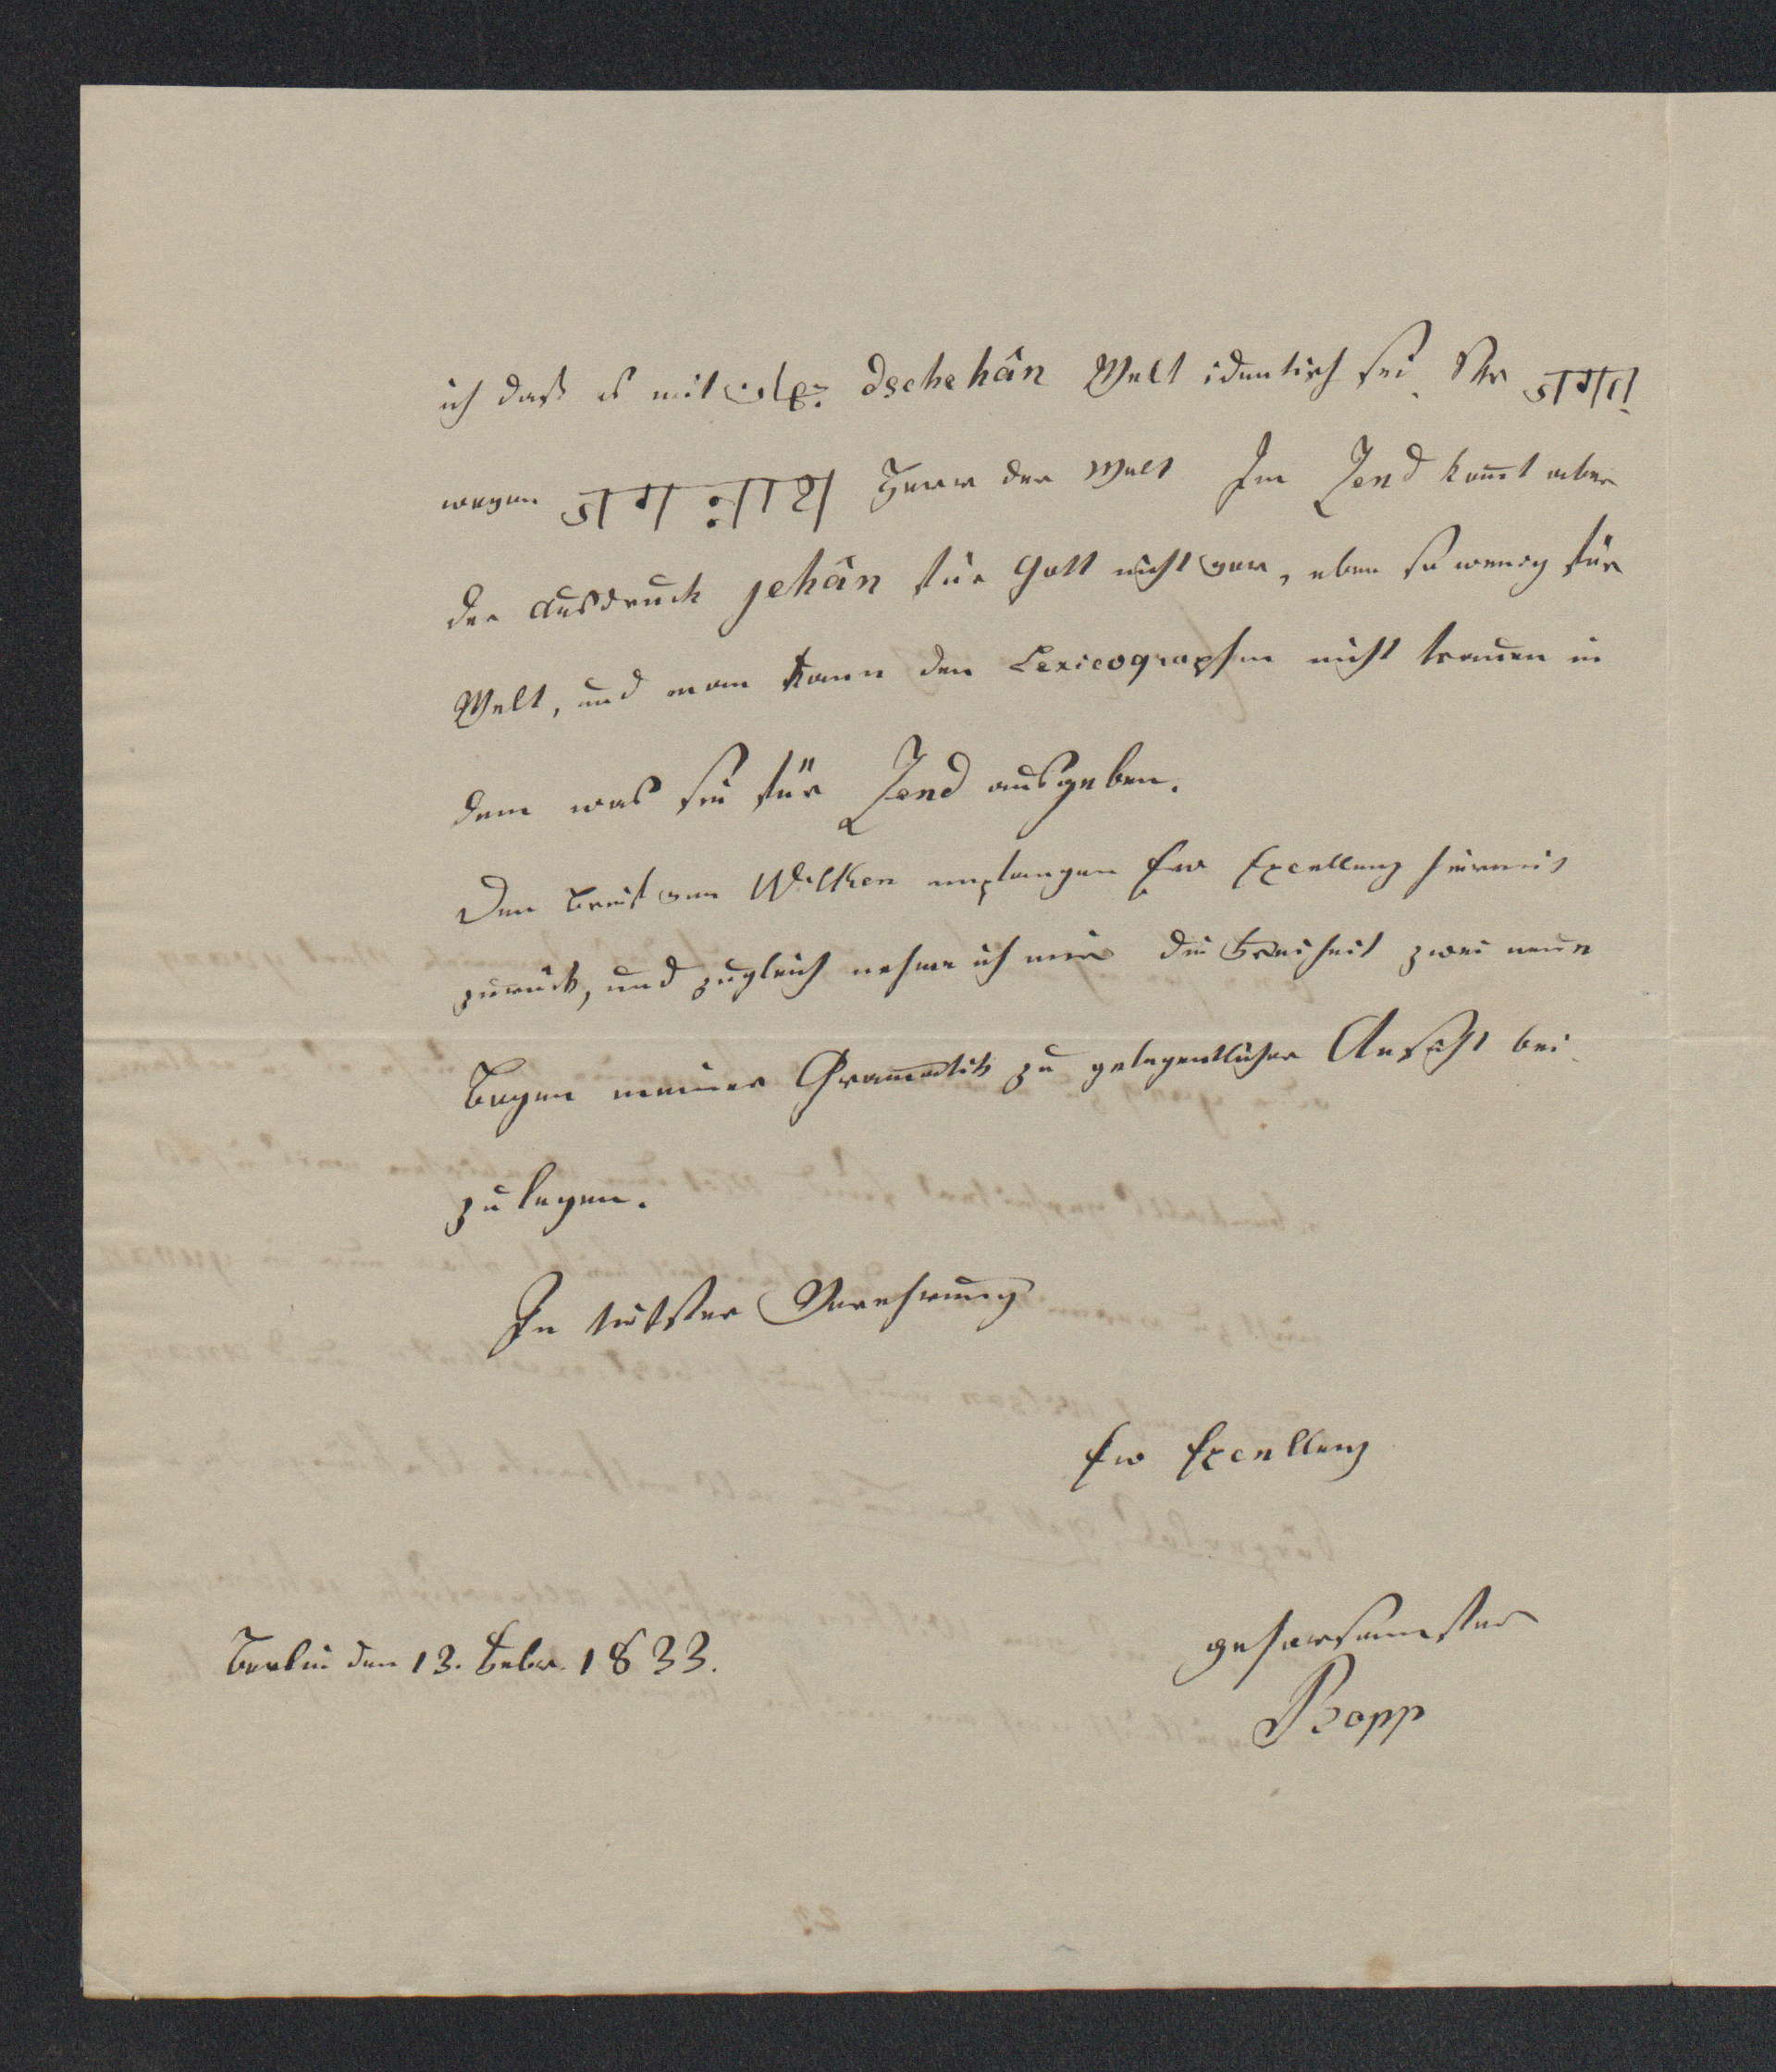 ich daß es mit جهان dschehân Welt identisch sei. Skr जगत्
wegen जगन्नाथ Herr der Welt Im Zend kom̄t aber
der Ausdruck jehân für Gott nicht vor, eben so wenig für
Welt, und man kann den Lexicographen nicht trauen in
dem was sie für Zend ausgeben.
Den Brief von Wilken empfangen Ew Excellenz hiermit
zurück, und zugleich nehme ich mir die Freiheit zwei neue
Bogen meiner Gram̄atik zu gelegentlicher Ansicht bei
zu legen.
In tiefster Verehrung
Ew Excellenz
gehorsamster
Berlin den 13. Febr. 1833.
Bopp